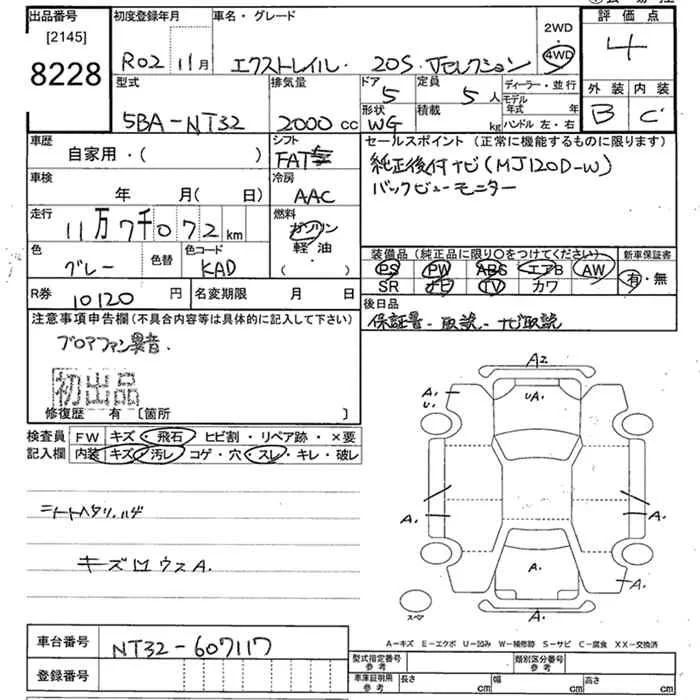 出品番号 初度登録年月 車名・グレード 2WD 評価点
[2145]
8228
R02 11月 エクストレイル. 20S.Vセレクション 4WD 4
型式 排気量 ドア 定員 ディーラー・並行 外装 内装
5BA-NT32 2000cc 5 5人 モデル年式 年 B C
形状 積載 ハンドル 左・右
WG kg
車歴 シフト セールスポイント(正常に機能するものに限ります)
自家用・( ) FAT
純正後付ナビ(MJ120D-W)
車検 冷房
年 月(日) AAC バックビューモニター
走行 燃料
11万7千072km ガソリン
軽・油
・( )
色 色替 色コード 装備品(純正品に限り○をつけてください) 新車保証書
グレー KAD PS PW ABS エアB AW 有・無
SR ナビ TV カワ
R券 10120円 名変期限 月 日 後日品
保証書-取説-ナビ取説
注意事項申告欄(不具合内容等は具体的に記入して下さい)
ブロアファン異音.
初出品
修復歴 有〔箇所 〕
検査員 FW キズ・飛石・ヒビ割・リペア跡・×要
記入欄 内装 キズ・汚レ・コゲ・穴・スレ・キレ・破レ
A2
A. UA.
U.
A. A.
シートヘタリ.ハゲ
キズ凹ウスA. A.
A.
スペア A.
A-キズ E-エクボ U-凹み W-補修跡 S-サビ C-腐食 XX-交換済
車台番号 NT32-607117
型式指定番号 類別区分番号
参考 参考
登録番号 車庫証明用 長さ 幅 高さ
参考 cm cm cm